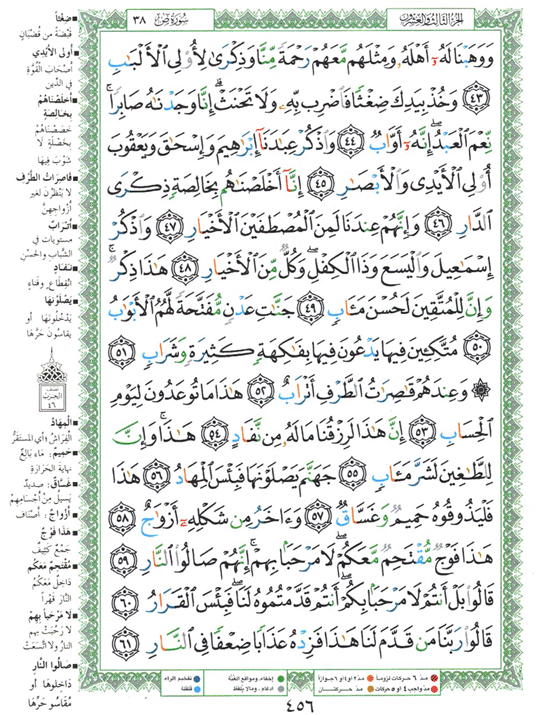 الجزء الثالث والعشرون
سورة ص ٣٨
وَوَهَبْنَا لَهُۥٓ أَهْلَهُۥ وَمِثْلَهُم مَّعَهُمْ رَحْمَةً مِّنَّا وَذِكْرَىٰ لِأُو۟لِى ٱلْأَلْبَـٰبِ
٤٣ وَخُذْ بِيَدِكَ ضِغْثًا فَٱضْرِب بِّهِۦ وَلَا تَحْنَثْ ۗ إِنَّا وَجَدْنَـٰهُ صَابِرًا ۚ
نِّعْمَ ٱلْعَبْدُ ۖ إِنَّهُۥٓ أَوَّابٌ ٤٤ وَٱذْكُرْ عِبَـٰدَنَآ إِبْرَٰهِيمَ وَإِسْحَـٰقَ وَيَعْقُوبَ
أُو۟لِى ٱلْأَيْدِى وَٱلْأَبْصَـٰرِ ٤٥ إِنَّآ أَخْلَصْنَـٰهُم بِخَالِصَةٍ ذِكْرَى
ٱلدَّارِ ٤٦ وَإِنَّهُمْ عِندَنَا لَمِنَ ٱلْمُصْطَفَيْنَ ٱلْأَخْيَارِ ٤٧ وَٱذْكُرْ
إِسْمَـٰعِيلَ وَٱلْيَسَعَ وَذَا ٱلْكِفْلِ ۖ وَكُلٌّ مِّنَ ٱلْأَخْيَارِ ٤٨ هَـٰذَا ذِكْرٌ ۚ
وَإِنَّ لِلْمُتَّقِينَ لَحُسْنَ مَـَٔابٍ ٤٩ جَنَّـٰتِ عَدْنٍ مُّفَتَّحَةً لَّهُمُ ٱلْأَبْوَٰبُ
٥٠ مُتَّكِـِٔينَ فِيهَا يَدْعُونَ فِيهَا بِفَـٰكِهَةٍ كَثِيرَةٍ وَشَرَابٍ ٥١
۞ وَعِندَهُمْ قَـٰصِرَٰتُ ٱلطَّرْفِ أَتْرَابٌ ٥٢ هَـٰذَا مَا تُوعَدُونَ لِيَوْمِ
ٱلْحِسَابِ ٥٣ إِنَّ هَـٰذَا لَرِزْقُنَا مَا لَهُۥ مِن نَّفَادٍ ٥٤ هَـٰذَا ۚ وَإِنَّ
لِلطَّـٰغِينَ لَشَرَّ مَـَٔابٍ ٥٥ جَهَنَّمَ يَصْلَوْنَهَا فَبِئْسَ ٱلْمِهَادُ ٥٦ هَـٰذَا
فَلْيَذُوقُوهُ حَمِيمٌ وَغَسَّاقٌ ٥٧ وَءَاخَرُ مِن شَكْلِهِۦٓ أَزْوَٰجٌ ٥٨
هَـٰذَا فَوْجٌ مُّقْتَحِمٌ مَّعَكُمْ ۖ لَا مَرْحَبًۢا بِهِمْ ۚ إِنَّهُمْ صَالُوا۟ ٱلنَّارِ ٥٩
قَالُوا۟ بَلْ أَنتُمْ لَا مَرْحَبًۢا بِكُمْ ۖ أَنتُمْ قَدَّمْتُمُوهُ لَنَا ۖ فَبِئْسَ ٱلْقَرَارُ ٦٠
قَالُوا۟ رَبَّنَا مَن قَدَّمَ لَنَا هَـٰذَا فَزِدْهُ عَذَابًا ضِعْفًا فِى ٱلنَّارِ ٦١
■ ضِغْثاً
قَبْضَةً من قُضْبَان
■ أولي الأيْدِي
أصْحَابَ القُوَّةِ
في الدِّين
■ أخْلَصْنَاهُمْ
بخالِصَةٍ
خصَصْنَاهُمْ
بخَصْلَةٍ لَا
شَوْبَ فيها
■ قاصِرَاتُ الطَّرْفِ
لا يَنْظُرْنَ لغير
أزْواجِهِنَّ
■ أترَابٌ
مستويات في
الشَّبابِ والحُسْنِ
■ نَفَادٍ
انْقِطَاعٍ وفَنَاءٍ
■ يَصْلَوْنَها
يَدْخُلُونَها أو
يقاسُونَ حَرَّها
نصف
الحزب
٤٦
■ المِهَادُ
الفِرَاشُ؛ أي المستَقَرُّ
■ حَمِيمٌ: مَاءٌ بَالِغٌ
نهاية الحَرَارَةِ
■ غَسَّاقٌ: صديدٌ
يَسيلُ مِنْ أجْسَامِهِمْ
■ أزْوَاجٌ: أصْنَافٌ
■ هذا فَوْجٌ
جَمْعٌ كَثِيفٌ
■ مُقْتَحِمٌ مَعَكُمْ
داخِلٌ مَعَكُمْ
النَّارَ قَهْراً
■ لا مَرْحَباً بِهِمْ
لا رَحُبَتْ بهم
النارُ ولا اتَّسَعَتْ
■ صَالُوا النَّارِ
دَاخِلُوهَا أو
مُقَاسُو حَرِّها
مدّ ٦ حركات لزوماً مدّ ٢ أو ٤ أو ٦ جوازاً
مدّ واجب ٤ أو ٥ حركات مدّ حركتان
إخفاء، ومواقع الغُنَّة
إدغام، وما لا يُلفَظ
تفخيم الراء
قلقلة
٤٥٦